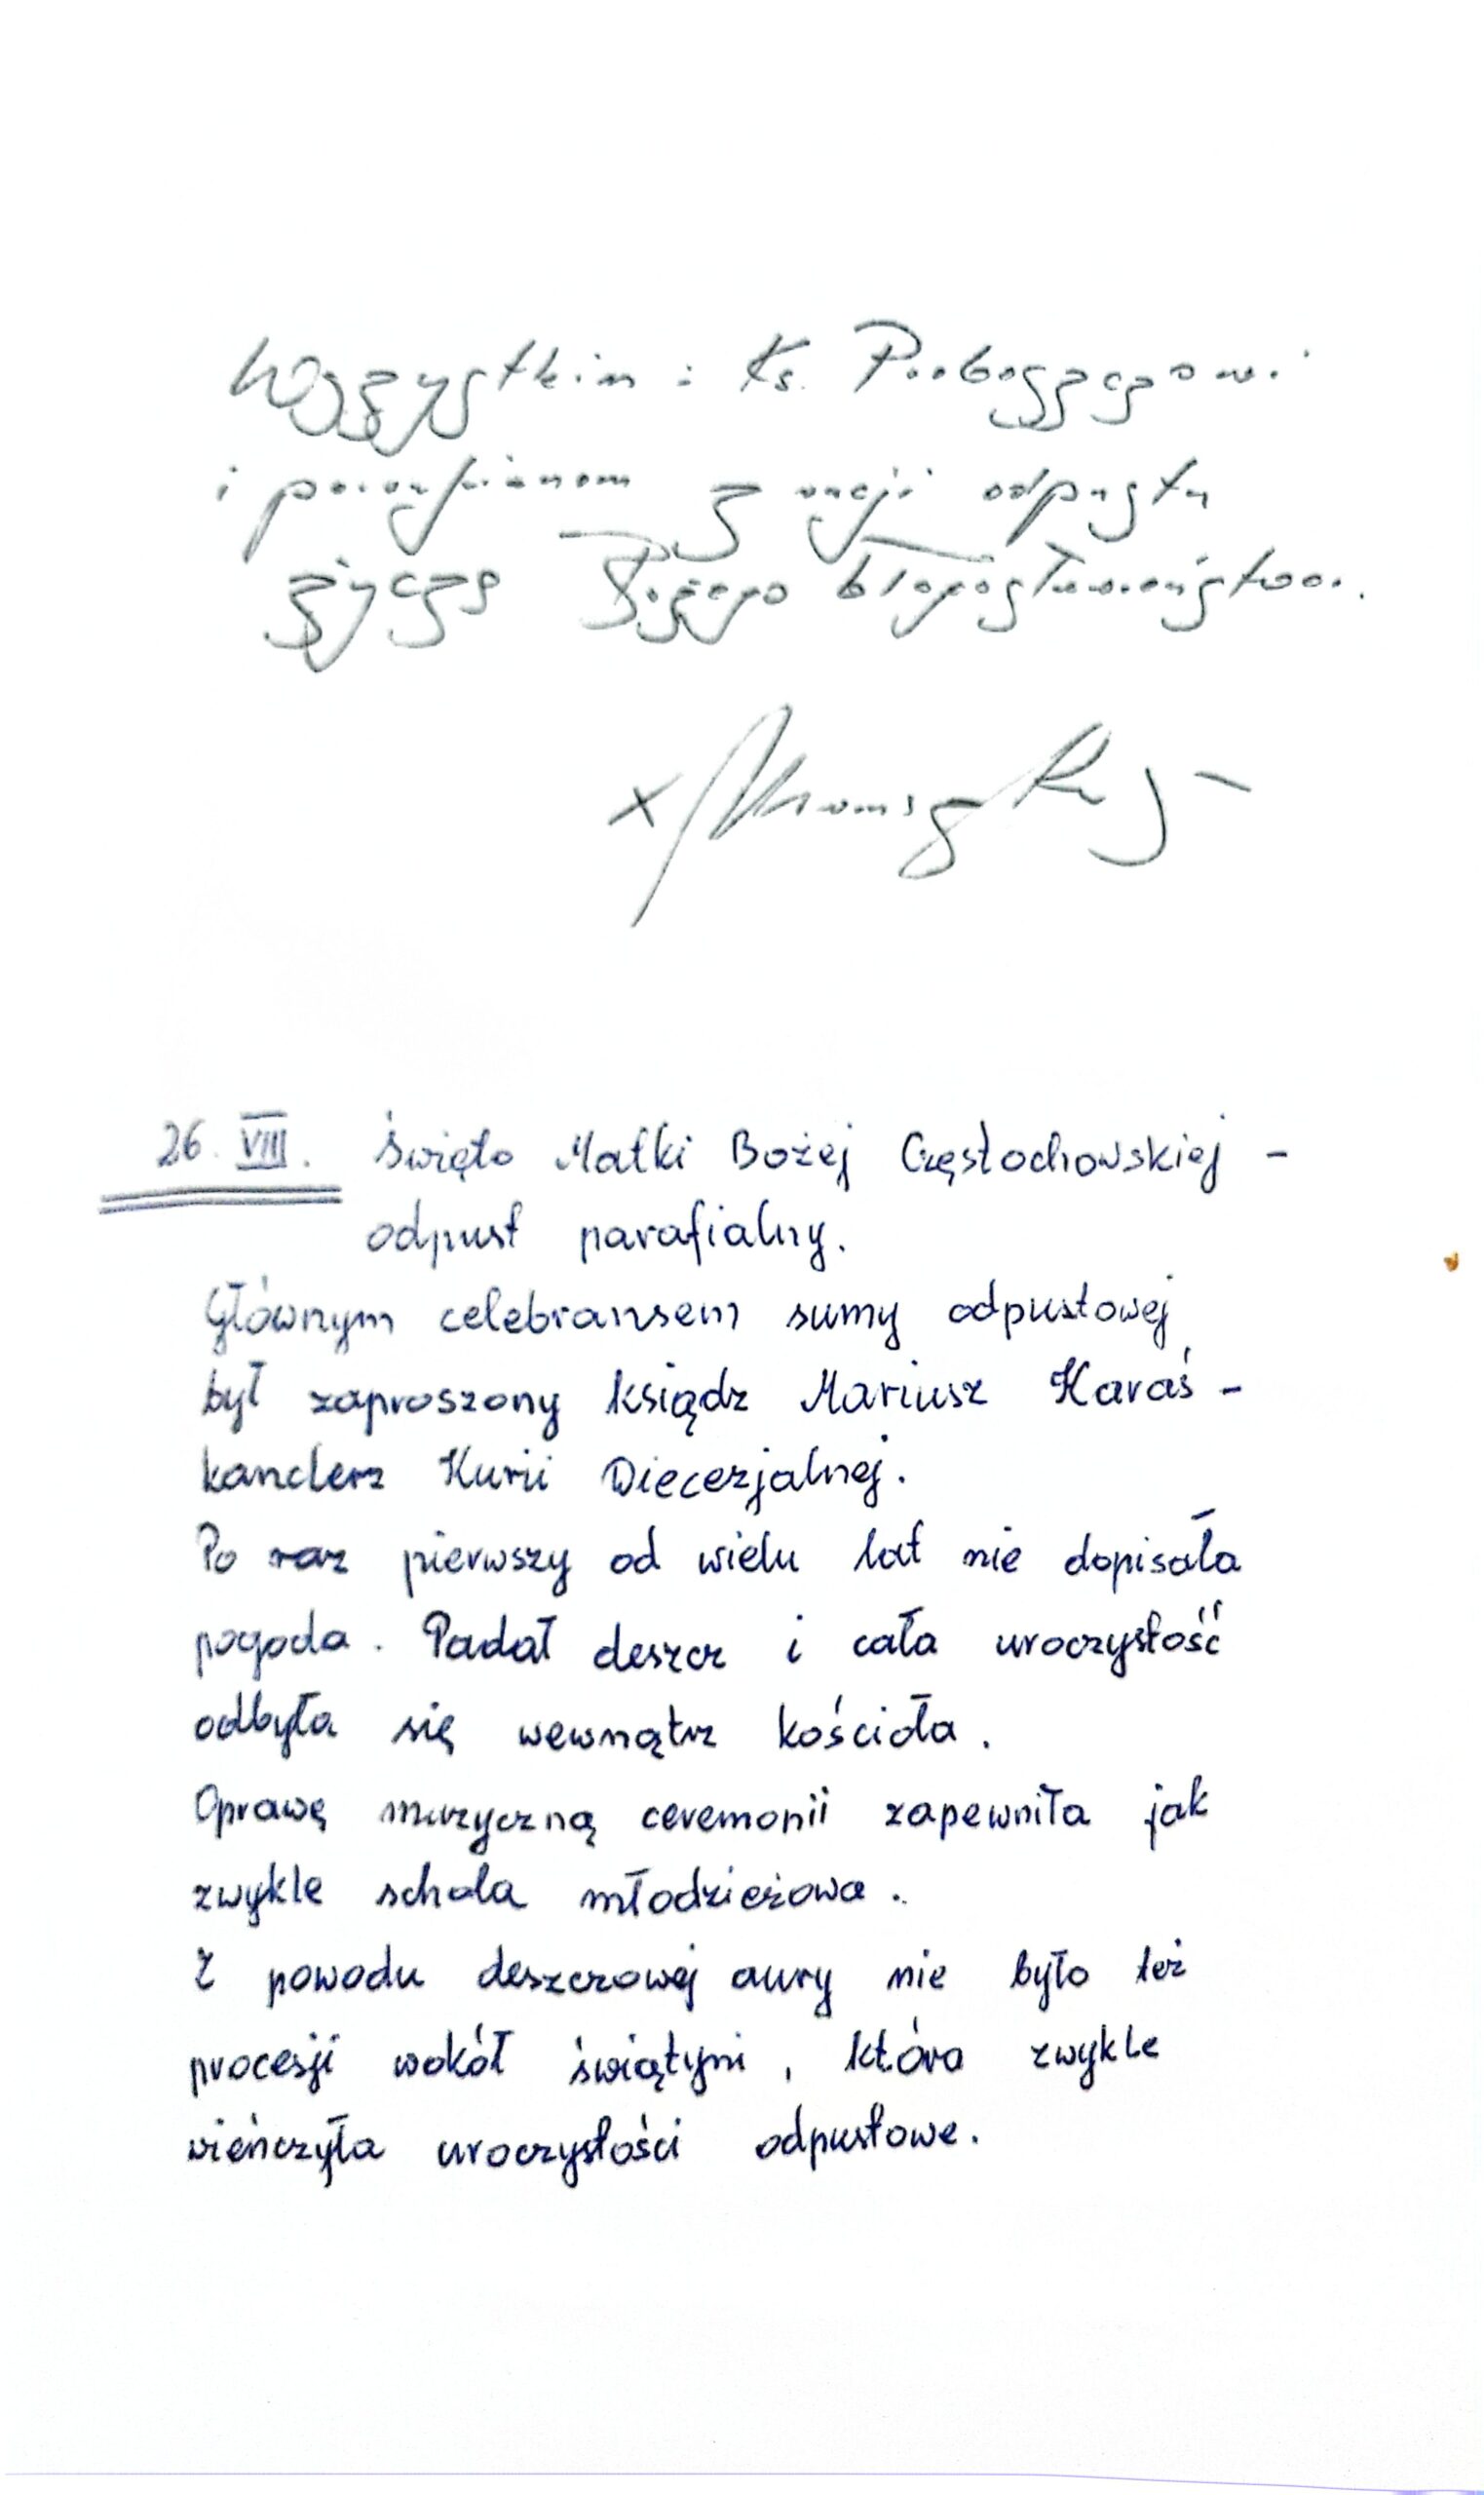 Wszystkim : Ks. Proboszczowi
i parafianom z racji odpustu
życzę Bożego błogosławieństwa.
26. VIII. Święto Matki Bożej Częstochowskiej -
odpust parafialny.
Głównym celebransem sumy odpustowej
był zaproszony ksiądz Mariusz Karaś -
kanclerz Kurii Diecezjalnej.
Po raz pierwszy od wielu lat nie dopisała
pogoda. Padał deszcz i cała uroczystość
odbyła się wewnątrz kościoła.
Oprawę muzyczną ceremonii zapewniła jak
zwykle schola młodzieżowa.
Z powodu deszczowej aury nie było też
procesji wokół świątyni, która zwykle
wieńczyła uroczystości odpustowe.